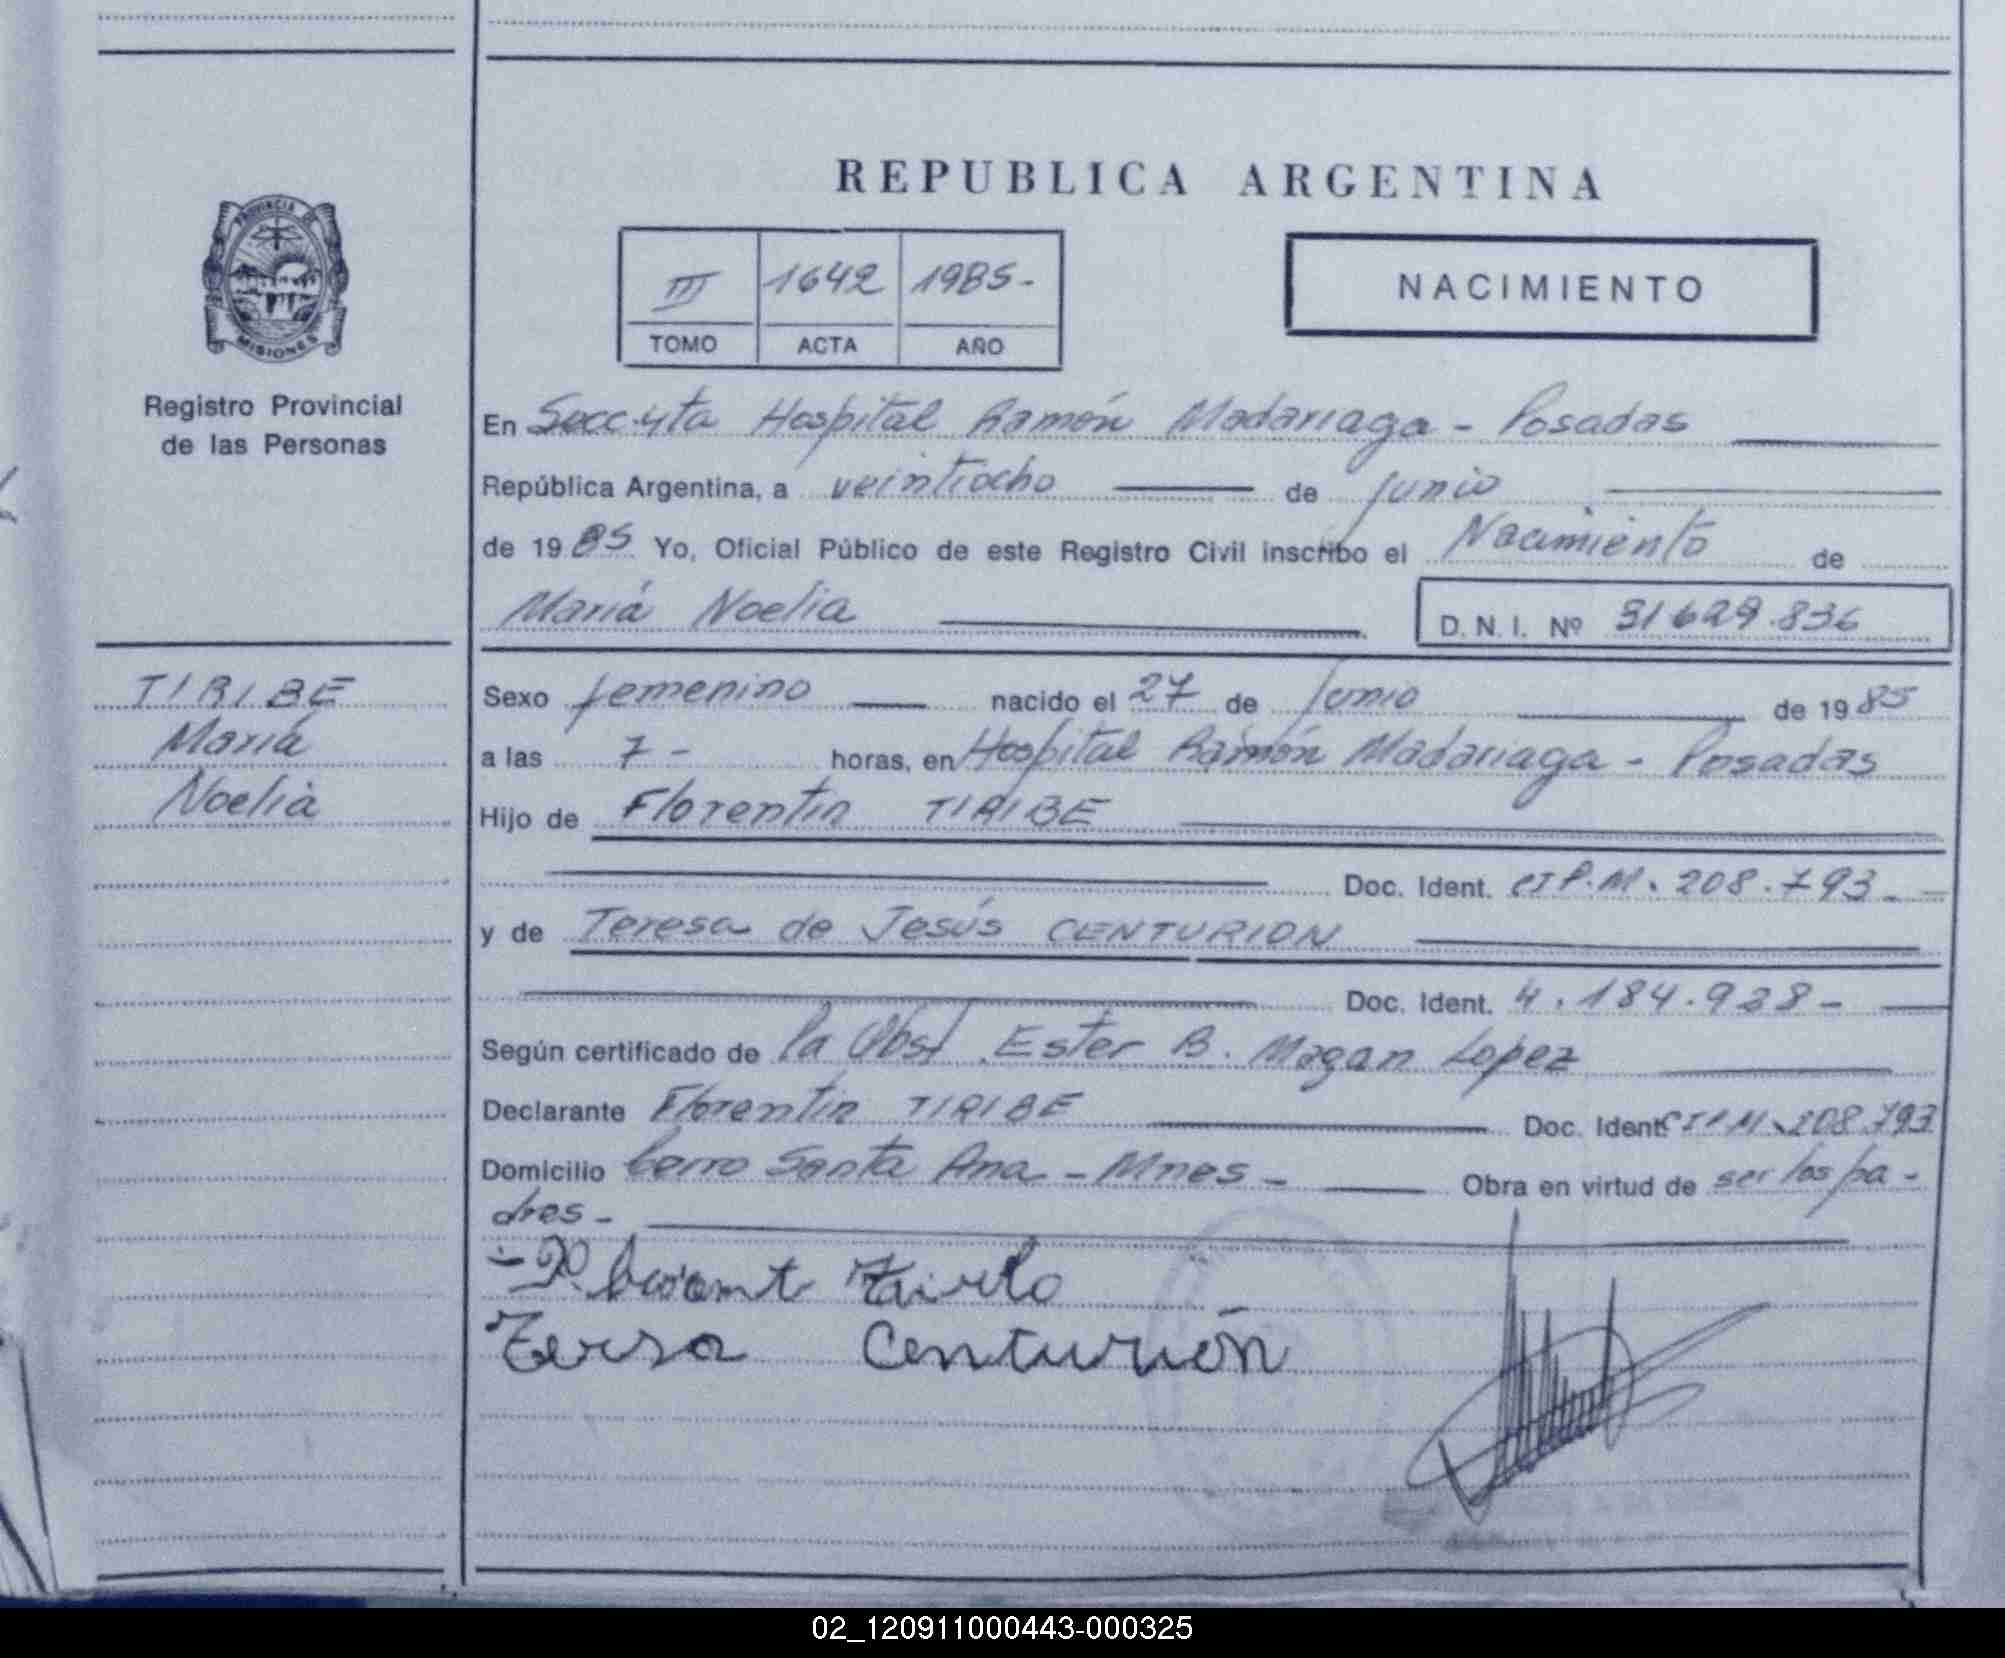 REPUBLICA ARGENTINA
PROVINCIA DE
MISIONES
Registro Provincial
de las Personas
III 1642 1985-
TOMO ACTA AÑO
NACIMIENTO
En Secc. 4ta Hospital Ramón Madariaga - Posadas
República Argentina, a veintiocho de junio
de 1985 Yo, Oficial Público de este Registro Civil inscribo el Nacimiento de
María Noelia
D. N. I. Nº 31629.836
TIRIBE
María
Noelia
Sexo femenino nacido el 27 de junio de 1985
a las 7 - horas, en Hospital Ramón Madariaga - Posadas
Hijo de Florentin TIRIBE
Doc. Ident. CI P.M. 208.793-
y de Teresa de Jesús CENTURION
Doc. Ident. 4.184.928-
Según certificado de la Obst. Ester B. Magan Lopez
Declarante Florentin TIRIBE Doc. Ident. CI P M. 208.793
Domicilio Cerro Santa Ana - Mnes - Obra en virtud de ser los pa-
dres -
Tersa Centurión
02_120911000443-000325